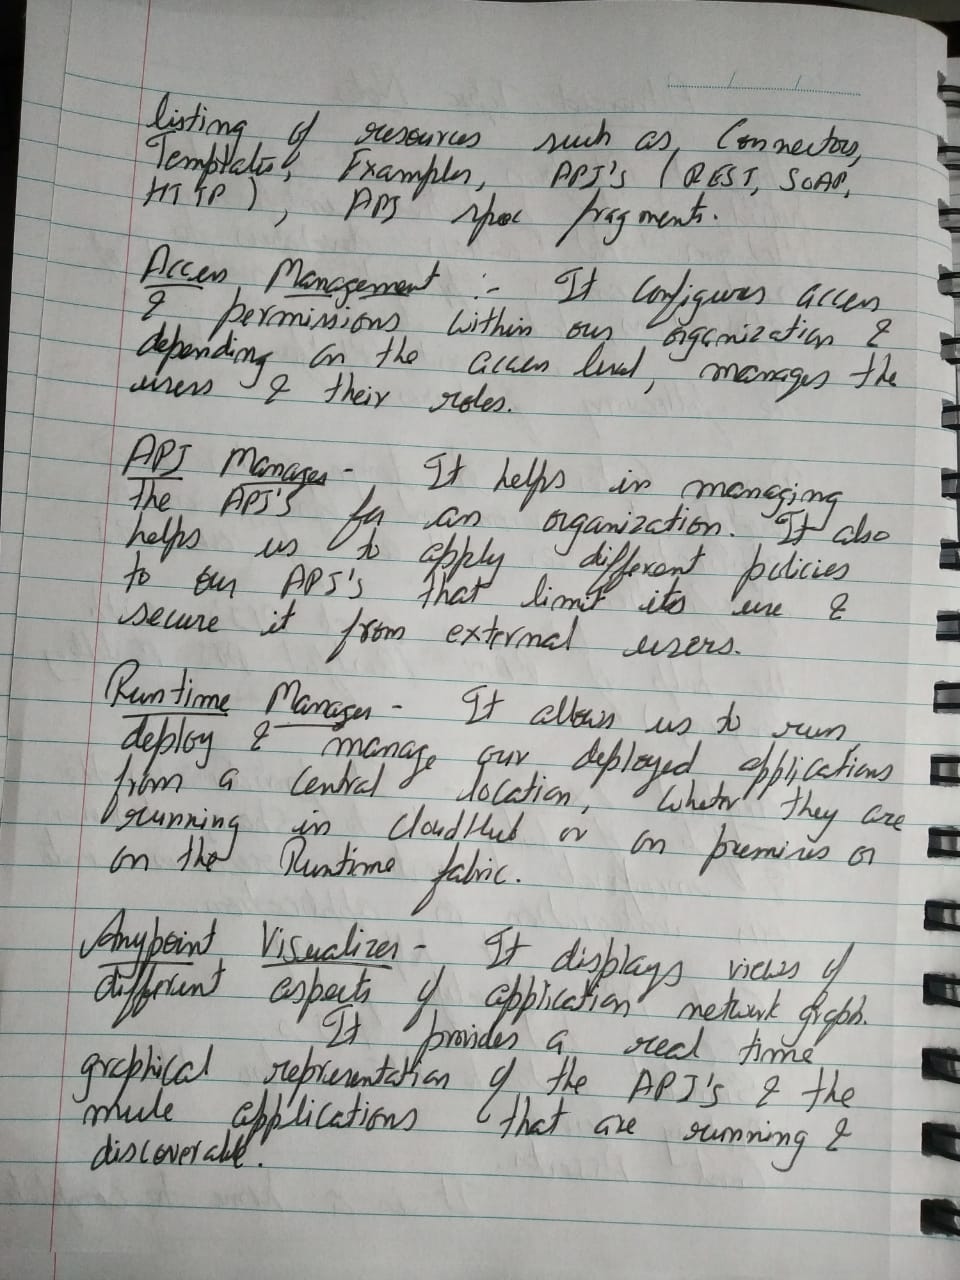 listing of resources such as, Connectors,
Templates, Examples, API's (REST, SOAP,
HTTP), API spec fragments.
Access Management :- It configures access
& permissions within our organization &
depending on the access level, manages the
users & their roles.
API Manager - It helps in managing
the API's for an organization. It also
helps us to apply different policies
to our API's that limit its use &
secure it from external users.
Runtime Manager - It allows us to run,
deploy & manage our deployed applications
from a central location, wheter they are
running in CloudHub or on premises or
on the Runtime fabric.
Anypoint Visualizer - It displays views of
different aspects of application network graph.
It provides a real time
graphical representation of the API's & the
mule applications that are running &
discoverable.